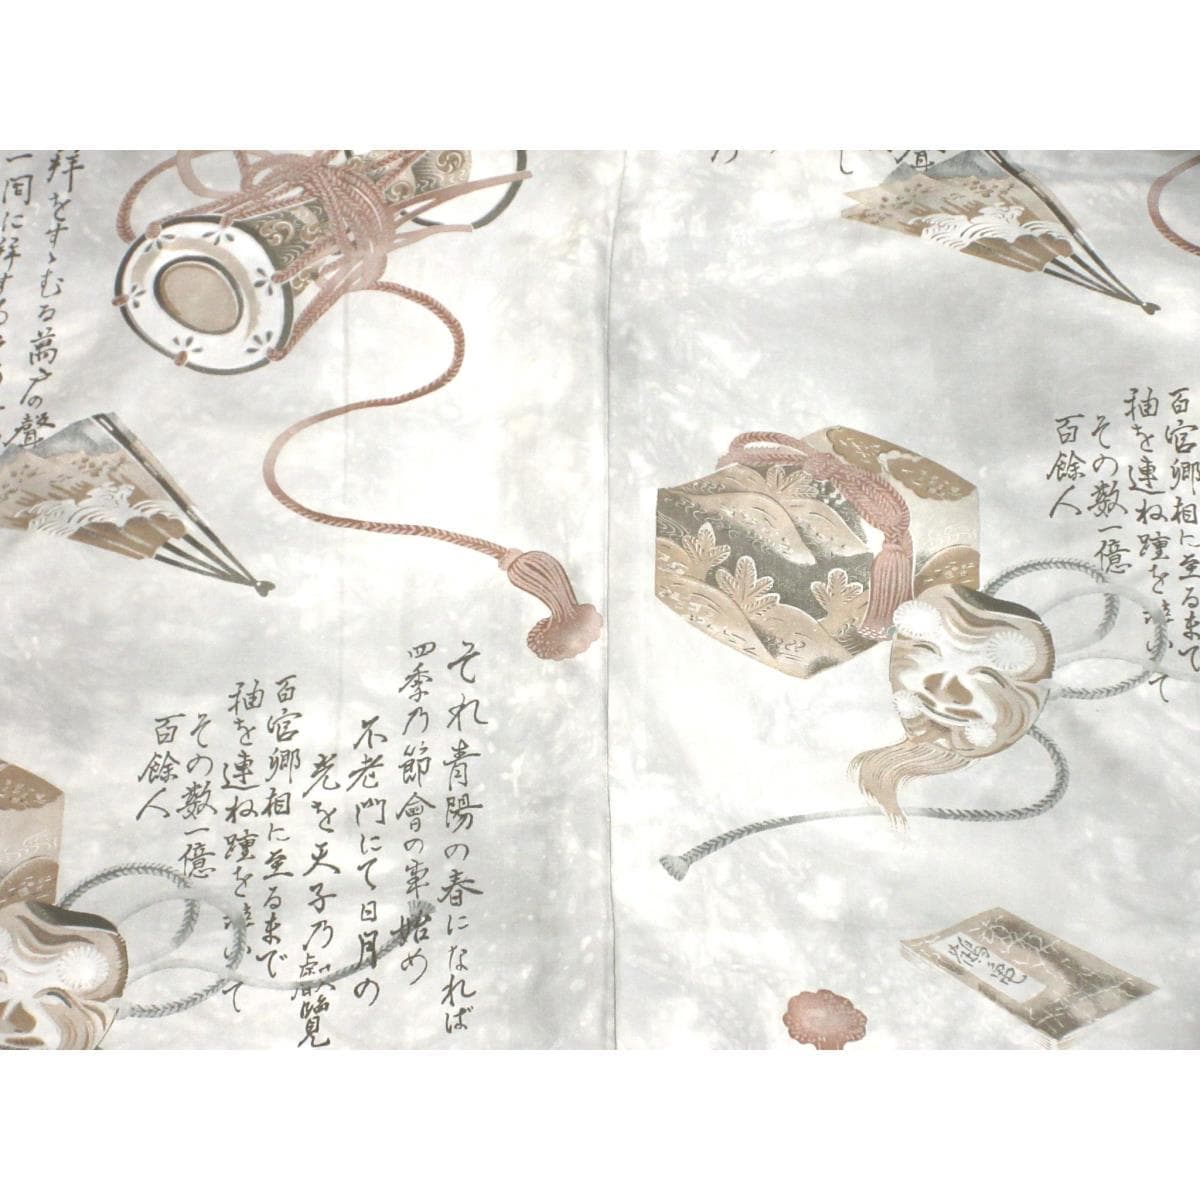 それ青陽の春になれば
四季乃節會の事始め
不老門にて日月の
光を天子乃叡覧
百官卿相に至るまで
袖を連ね踵を
その数一億
百餘人
拝をすゝむる萬戸の聲
一同に拝する
百官卿相に至るまで
袖を連ね踵を
その数一億
百餘人